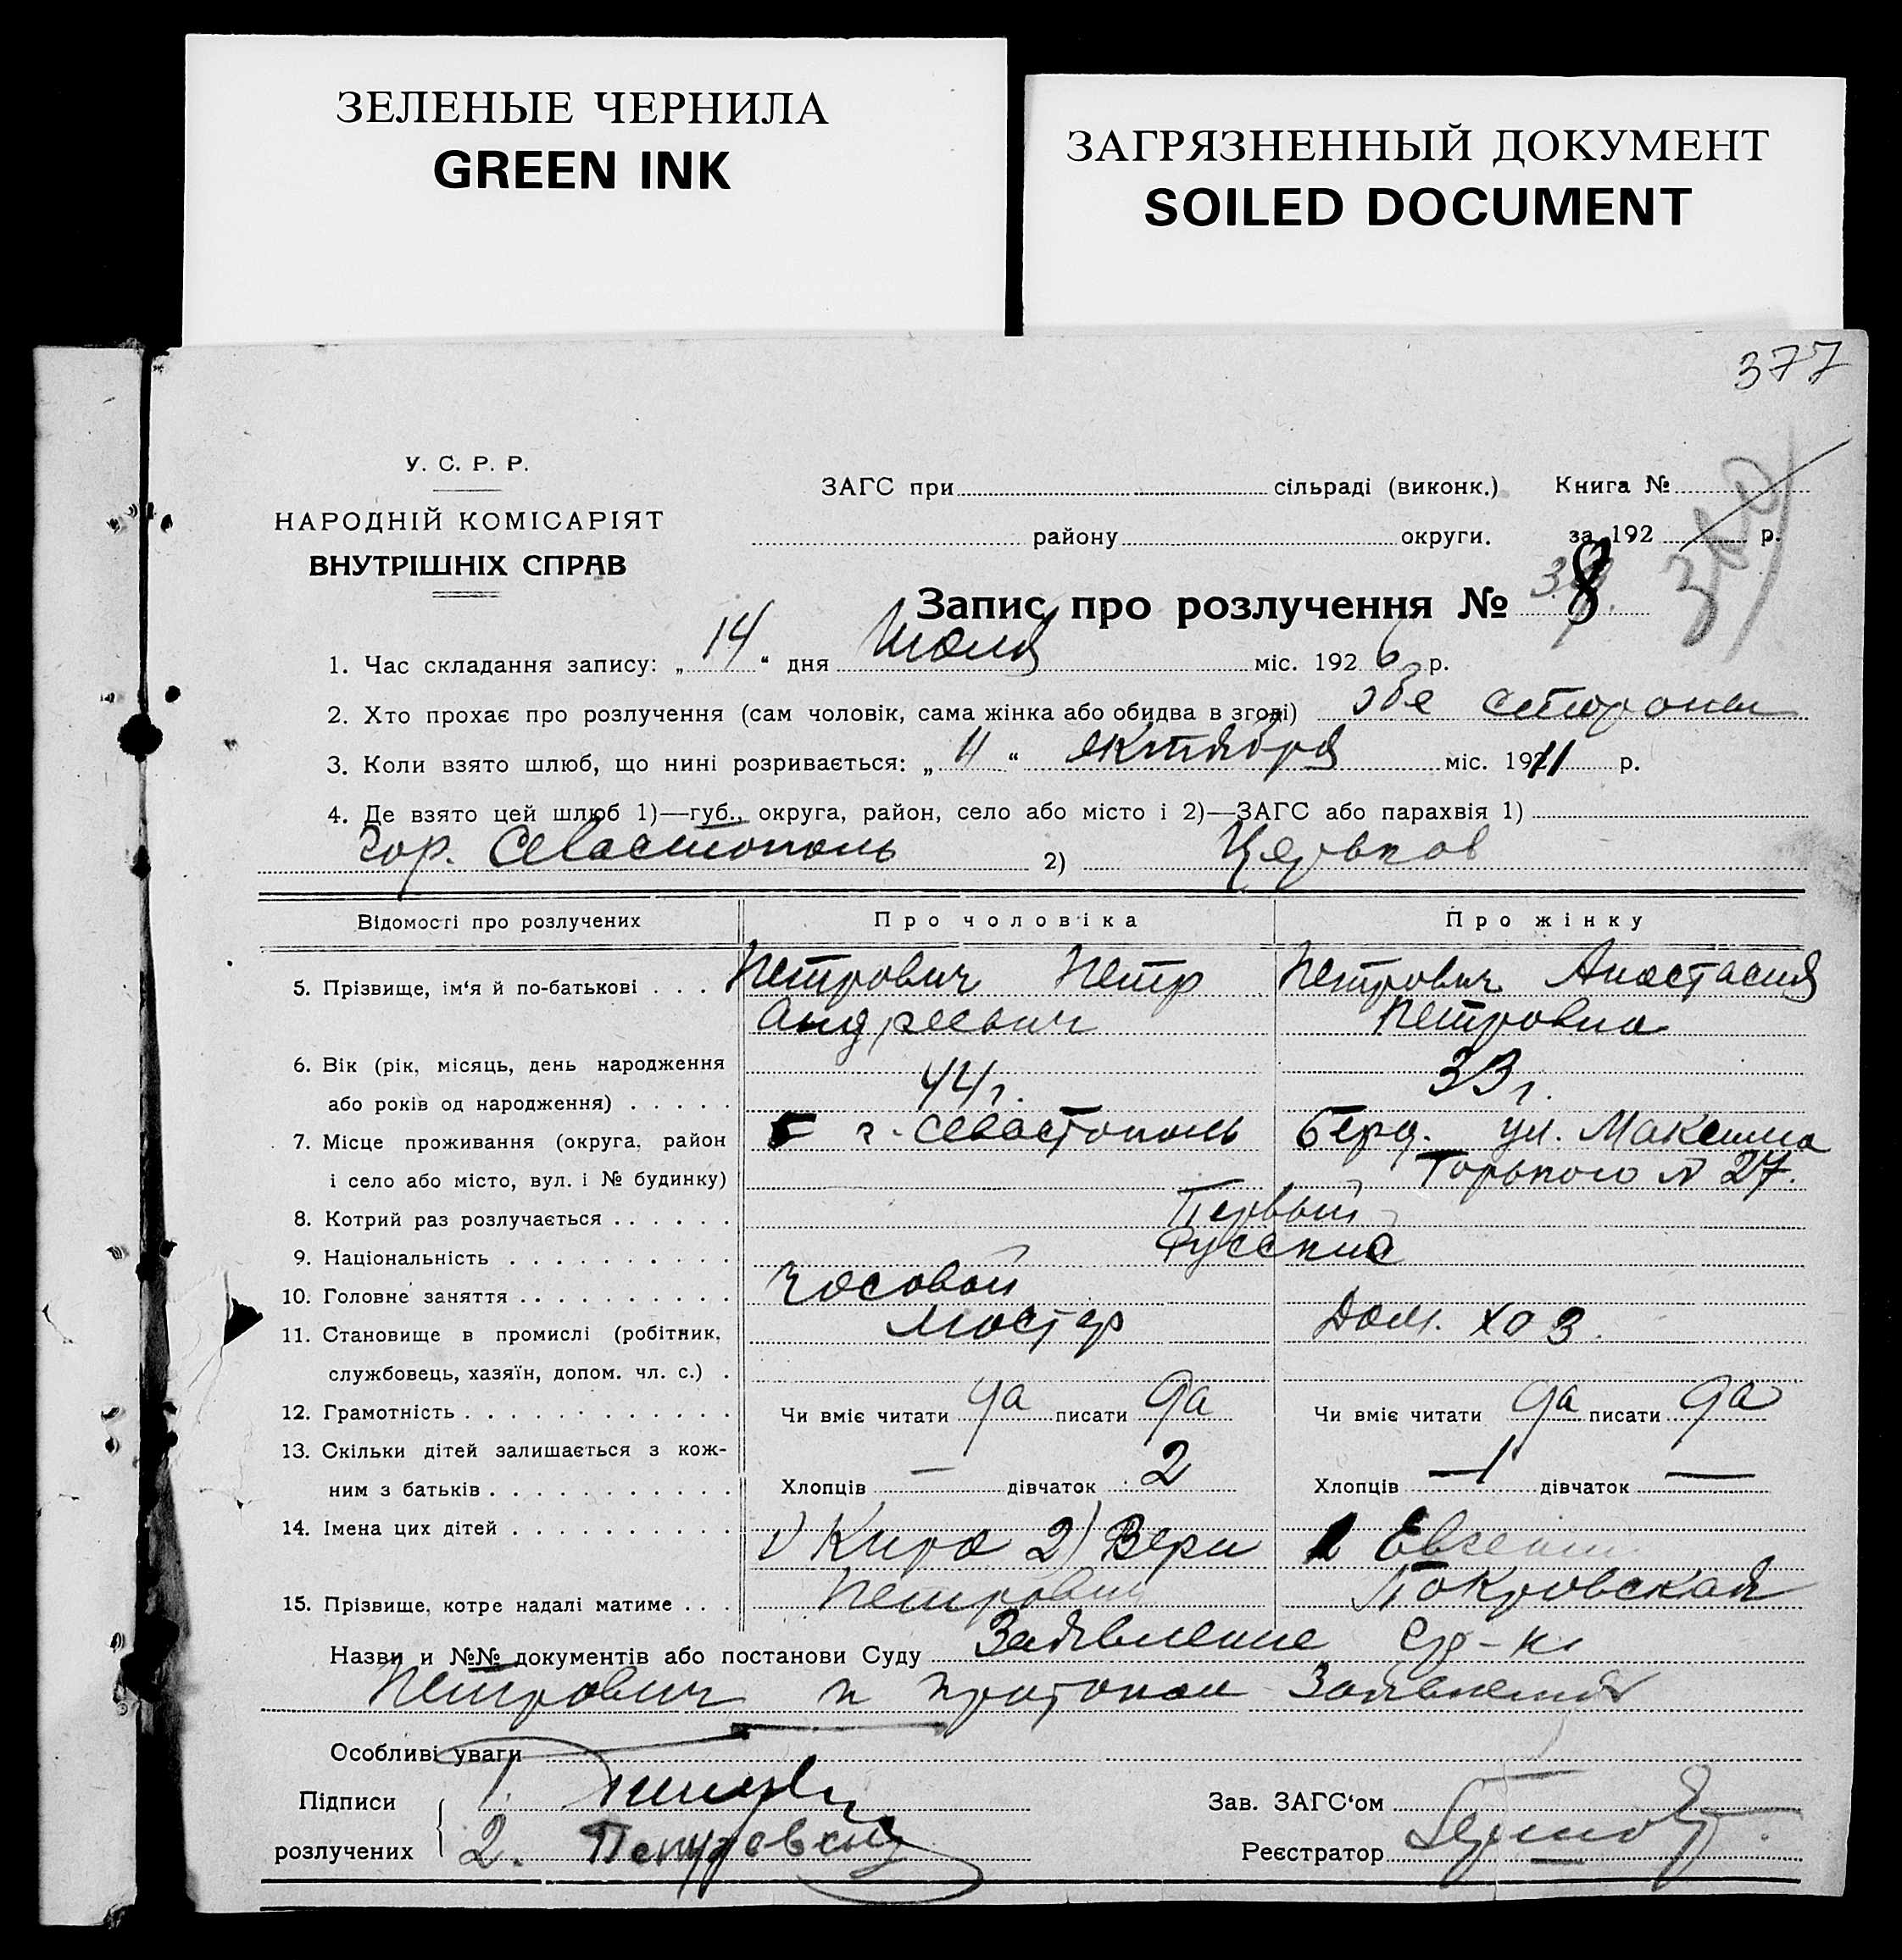 ЗЕЛЕНЫЕ ЧЕРНИЛА
GREEN INK
ЗАГРЯЗНЕННЫЙ ДОКУМЕНТ
SOILED DOCUMENT
377
У. С. Р. Р.
НАРОДНІЙ КОМІСАРІЯТ
ВНУТРІШНІХ СПРАВ
ЗАГС при сільраді (виконк.) Книга №
району округи. за 192 р.
Запис про розлучення № 8
1. Час складання запису: „14“ дня Июля міс. 1926 р.
2. Хто прохає про розлучення (сам чоловік, сама жінка або обидва в згоді) обе стороны
3. Коли взято шлюб, що нині розривається: „11“ октября міс. 1911 р.
4. Де взято цей шлюб 1)—губ., округа, район, село або місто і 2)—ЗАГС або парахвія 1)
гор. Севастополь 2) Церьков
Відомості про розлучених Про чоловіка Про жінку
5. Прізвище, ім'я й по-батькові . . . Петрович Петр Петрович Анастасия
Андреевич Петровна
6. Вік (рік, місяць, день народження
або років од народження) . . . . . 44 г. 33 г.
7. Місце проживання (округа, район г. Севастополь Берд. ул. Максима
і село або місто, вул. і № будинку) Горького № 27.
8. Котрий раз розлучається . . . . . . Первый
9. Національність . . . . . . . . . . Русские
10. Головне заняття . . . . . . . . . . Часовой
11. Становище в промислі (робітник, мастер Дом. хоз.
службовець, хазяїн, допом. чл. с.) .
12. Грамотність . . . . . . . . . . . . Чи вміє читати да писати да Чи вміє читати да писати да
13. Скільки дітей залишається з кож-
ним з батьків . . . . . . . . . . . Хлопців — дівчаток 2 Хлопців 1 дівчаток —
14. Імена цих дітей . . . . . . . . . .
1) Кира 2) Вера Евгений
15. Прізвище, котре надалі матиме . . . Петрович Покровская
Назви и №№ документів або постанови Суду Заявление гр-ки
Петрович и протокол заявления
Особливі уваги
Підписи 1.
розлучених 2.
Зав. ЗАГС'ом
Реєстратор